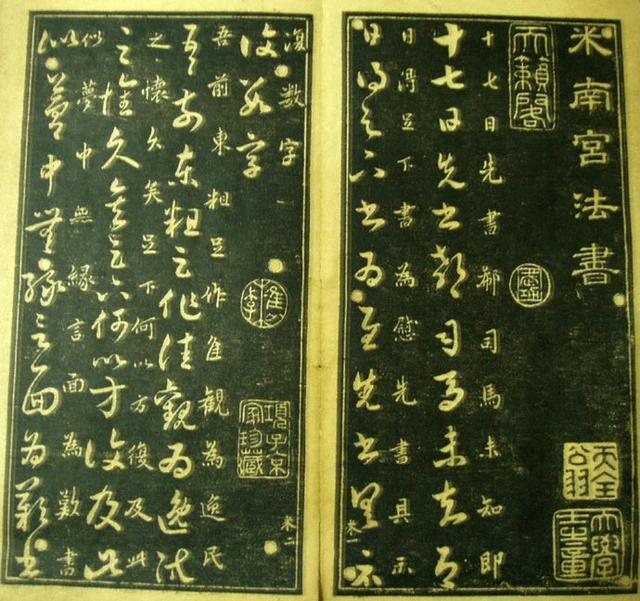 米南宮法書
天籟閣
十七日先書郗司馬未知即
十七日先書郗司馬未去即
日得足下書為慰先書具示
日得足下書為慰先書具示
米一
復數字
復數字
項子京家珍藏
米二
吾前東粗足作佳觀為逸民
吾前東粗足作佳觀為逸民
之懷久矣足下何以方復及此
之懷久矣足下何以方復及此
似夢中無緣言面為歎書
似夢中無緣言面為歎書